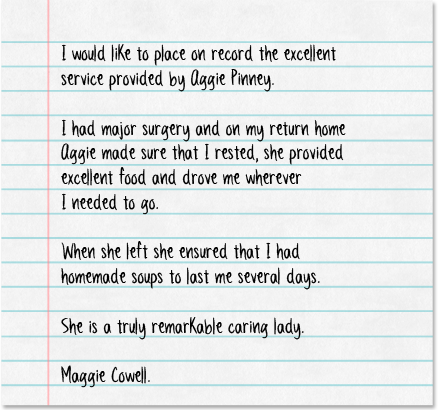 I would like to place on record the excellent
service provided by Aggie Pinney.
I had major surgery and on my return home
Aggie made sure that I rested, she provided
excellent food and drove me wherever
I needed to go.
When she left she ensured that I had
homemade soups to last me several days.
She is a truly remarkable caring lady.
Maggie Cowell.